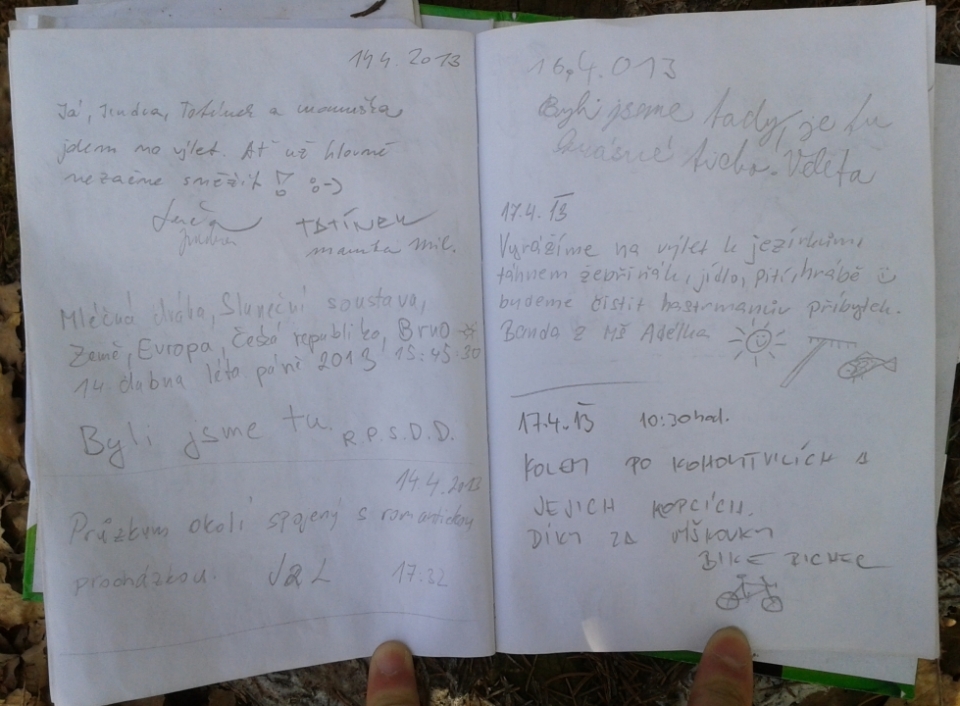 14.4. 2013
Já, Jindra, Tatínek a maminka
jdem na výlet. Ať už hlavně
nezačne sněžit! :-)
TATÍNEK
Mil.
Mléčná dráha, Sluneční soustava,
Země, Evropa, Česká republika, Brno
14. dubna léta páně 2013 15:45:30
Byli jsme tu. R.P.S.D.D.
14.4.2013
Průzkum okolí spojený s romantickou
procházkou. J&L 17:32
16.4.013
Byli jsme tady, je tu
krásné ticho. Vdeta
17.4.13
Vyrážíme na výlet k jezírkům,
táhnem žebřiňák, jídlo, pití, hrábě
budeme čistit hastrmanův příbytek.
Banda z MŠ Adélka
17.4.13 10:30hod.
KOLEM PO KOHOUTVILÍCH A
JEJICH KOPCÍCH.
DÍKY ZA
BIKE